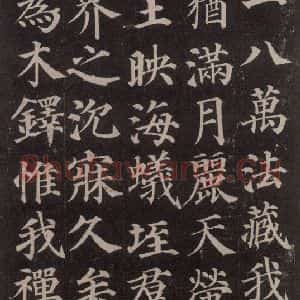 八萬法藏我
猶滿月麗天
王映海蟻垤
芥之沈寐久矣
為木鐸惟我禪